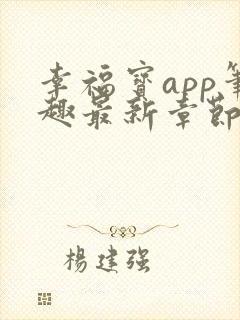 幸福寶app筆
趣最新章節
楊建強